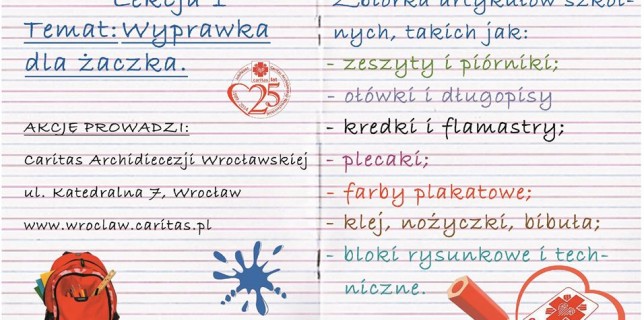 Lekcja 1
Temat: Wyprawka
dla żaczka.
25 lat
Caritas
AKCJĘ PROWADZI:
Caritas Archidiecezji Wrocławskiej
ul. Katedralna 7, Wrocław
www.wroclaw.caritas.pl
Zbiórka artykułów szkol-
nych, takich jak:
- zeszyty i piórniki;
- ołówki i długopisy
- kredki i flamastry;
- plecaki;
- farby plakatowe;
- klej, nożyczki, bibuła;
- bloki rysunkowe i tech-
niczne.